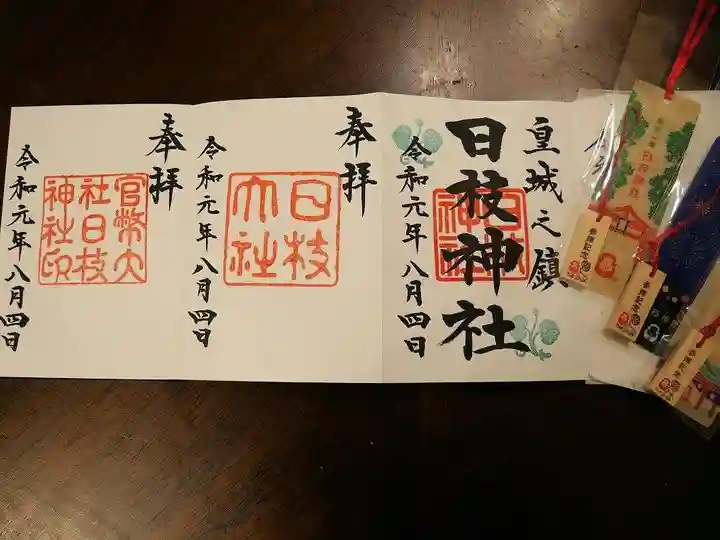 皇城之鎮
日枝神社
日枝神社
令和元年八月四日
奉拝
日枝
大社
令和元年八月四日
奉拝
官幣大
社日枝
神社印
令和元年八月四日
参拝記念
参拝記念
参拝記念